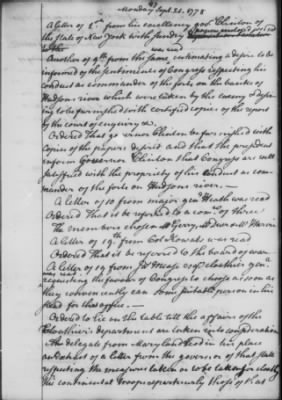 Monday Sept. 21. 1778
A letter of 8th from his excellency govr Clinton of
the state of New York with sundry papers enclosed
was read
Another of 9th from the same, intimating a desire to be
informed of the sentiments of Congress respecting his
conduct as commander of the forts on the banks of
Hudsons river which were taken by the enemy & desiring
to be furnished with certified copies of the report
by the court of enquiry &c.
Ordered That governor Clinton be furnished with
copies of the papers desired and that the president
inform Governor Clinton that Congress are well
satisfied with the propriety of his conduct as com-
mander of the forts on Hudsons river.—
A letter of 10 from major genl Heath was read
Ordered That it be referred to a comee of three
The members chosen Mr Gerry, Mr Drayton Mr
A letter of 19th from Col Kowats was read
Ordered That it be referred to the board of war
A letter of 19 from Js Mease esqr clothier genl
requesting the favour of Congress to choose as soon as
they conveniently can some suitable person in his
stead for that office.—
Ordered to lie on the table till the affairs of the
Clothier's department are taken into consideration
The delegates from Maryland laid in this place
an extract of a letter from the governor of that state
respecting the measures taken or to be taken for clothg
the continental troops & particularly those of that